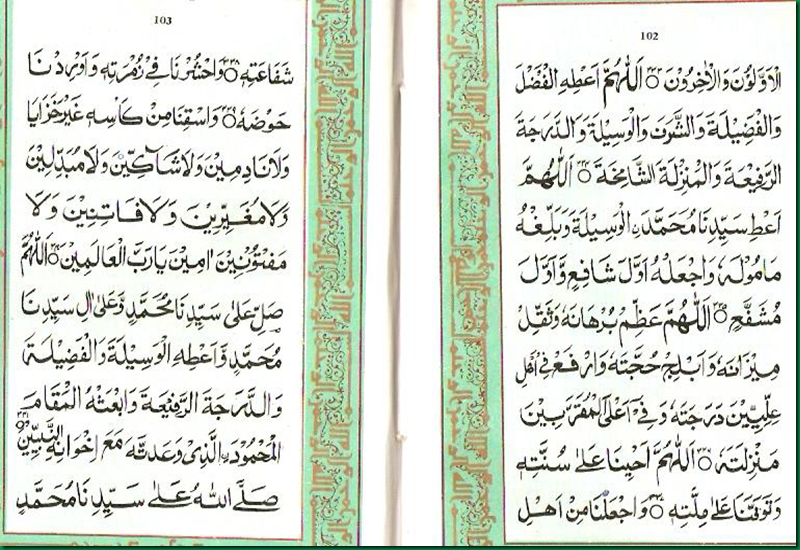 102
الْاَوَّلُوْنَ وَالْاٰخِرُوْنَ ○ اَللّٰهُمَّ اَعْطِهِ الْفَضْلَ
وَالْفَضِيْلَةَ وَالشَّرَفَ وَالْوَسِيْلَةَ وَالدَّرَجَةَ
الرَّفِيْعَةَ وَالْمَنْزِلَةَ الشَّامِخَةَ ○ اَللّٰهُمَّ
اَعْطِ سَيِّدَنَا مُحَمَّدَ ِۨالْوَسِيْلَةَ وَبَلِّغْهُ
مَامُوْلَهٗ وَاجْعَلْهُ اَوَّلَ شَافِعٍ وَّاَوَّلَ
مُشَفَّعٍ ○ اَللّٰهُمَّ عَظِّمْ بُرْهَانَهٗ وَثَقِّلْ
مِيْزَانَهٗ وَاَبْلِجْ حُجَّتَهٗ وَارْفَعْ فِيْ اَهْلِ
عِلِّيِّيْنَ دَرَجَتَهٗ وَفِيْ اَعْلَى الْمُقَرَّبِيْنَ
مَنْزِلَتَهٗ ○ اَللّٰهُمَّ اَحْيِنَا عَلٰى سُنَّتِهٖ
وَتَوَفَّنَا عَلٰى مِلَّتِهٖ ○ وَاجْعَلْنَا مِنْ اَهْلِ
103
شَفَاعَتِهٖ ○ وَاحْشُرْنَا فِيْ زُمْرَتِهٖ وَاَوْرِدْنَا
حَوْضَهٗ ○ وَاسْقِنَا مِنْ كَاْسِهٖ غَيْرَ خَزَايَا
وَلَا نَادِمِيْنَ وَلَا شَاكِّيْنَ وَلَا مُبَدِّلِيْنَ
وَلَا مُغَيِّرِيْنَ وَلَا فَاتِنِيْنَ وَلَا
مَفْتُوْنِيْنَ اٰمِيْنَ يَا رَبَّ الْعَالَمِيْنَ ○ اَللّٰهُمَّ
صَلِّ عَلٰى سَيِّدِنَا مُحَمَّدٍ وَّعَلٰى اٰلِ سَيِّدِنَا
مُحَمَّدٍ وَّاَعْطِهِ الْوَسِيْلَةَ وَالْفَضِيْلَةَ
وَالدَّرَجَةَ الرَّفِيْعَةَ وَابْعَثْهُ الْمَقَامَ
الْمَحْمُوْدَ ِۨالَّذِيْ وَعَدْتَّهٗ مَعَ اِخْوَانِهِ النَّبِيِّيْنَ ○
صَلَّى اللّٰهُ عَلٰى سَيِّدِنَا مُحَمَّدٍ